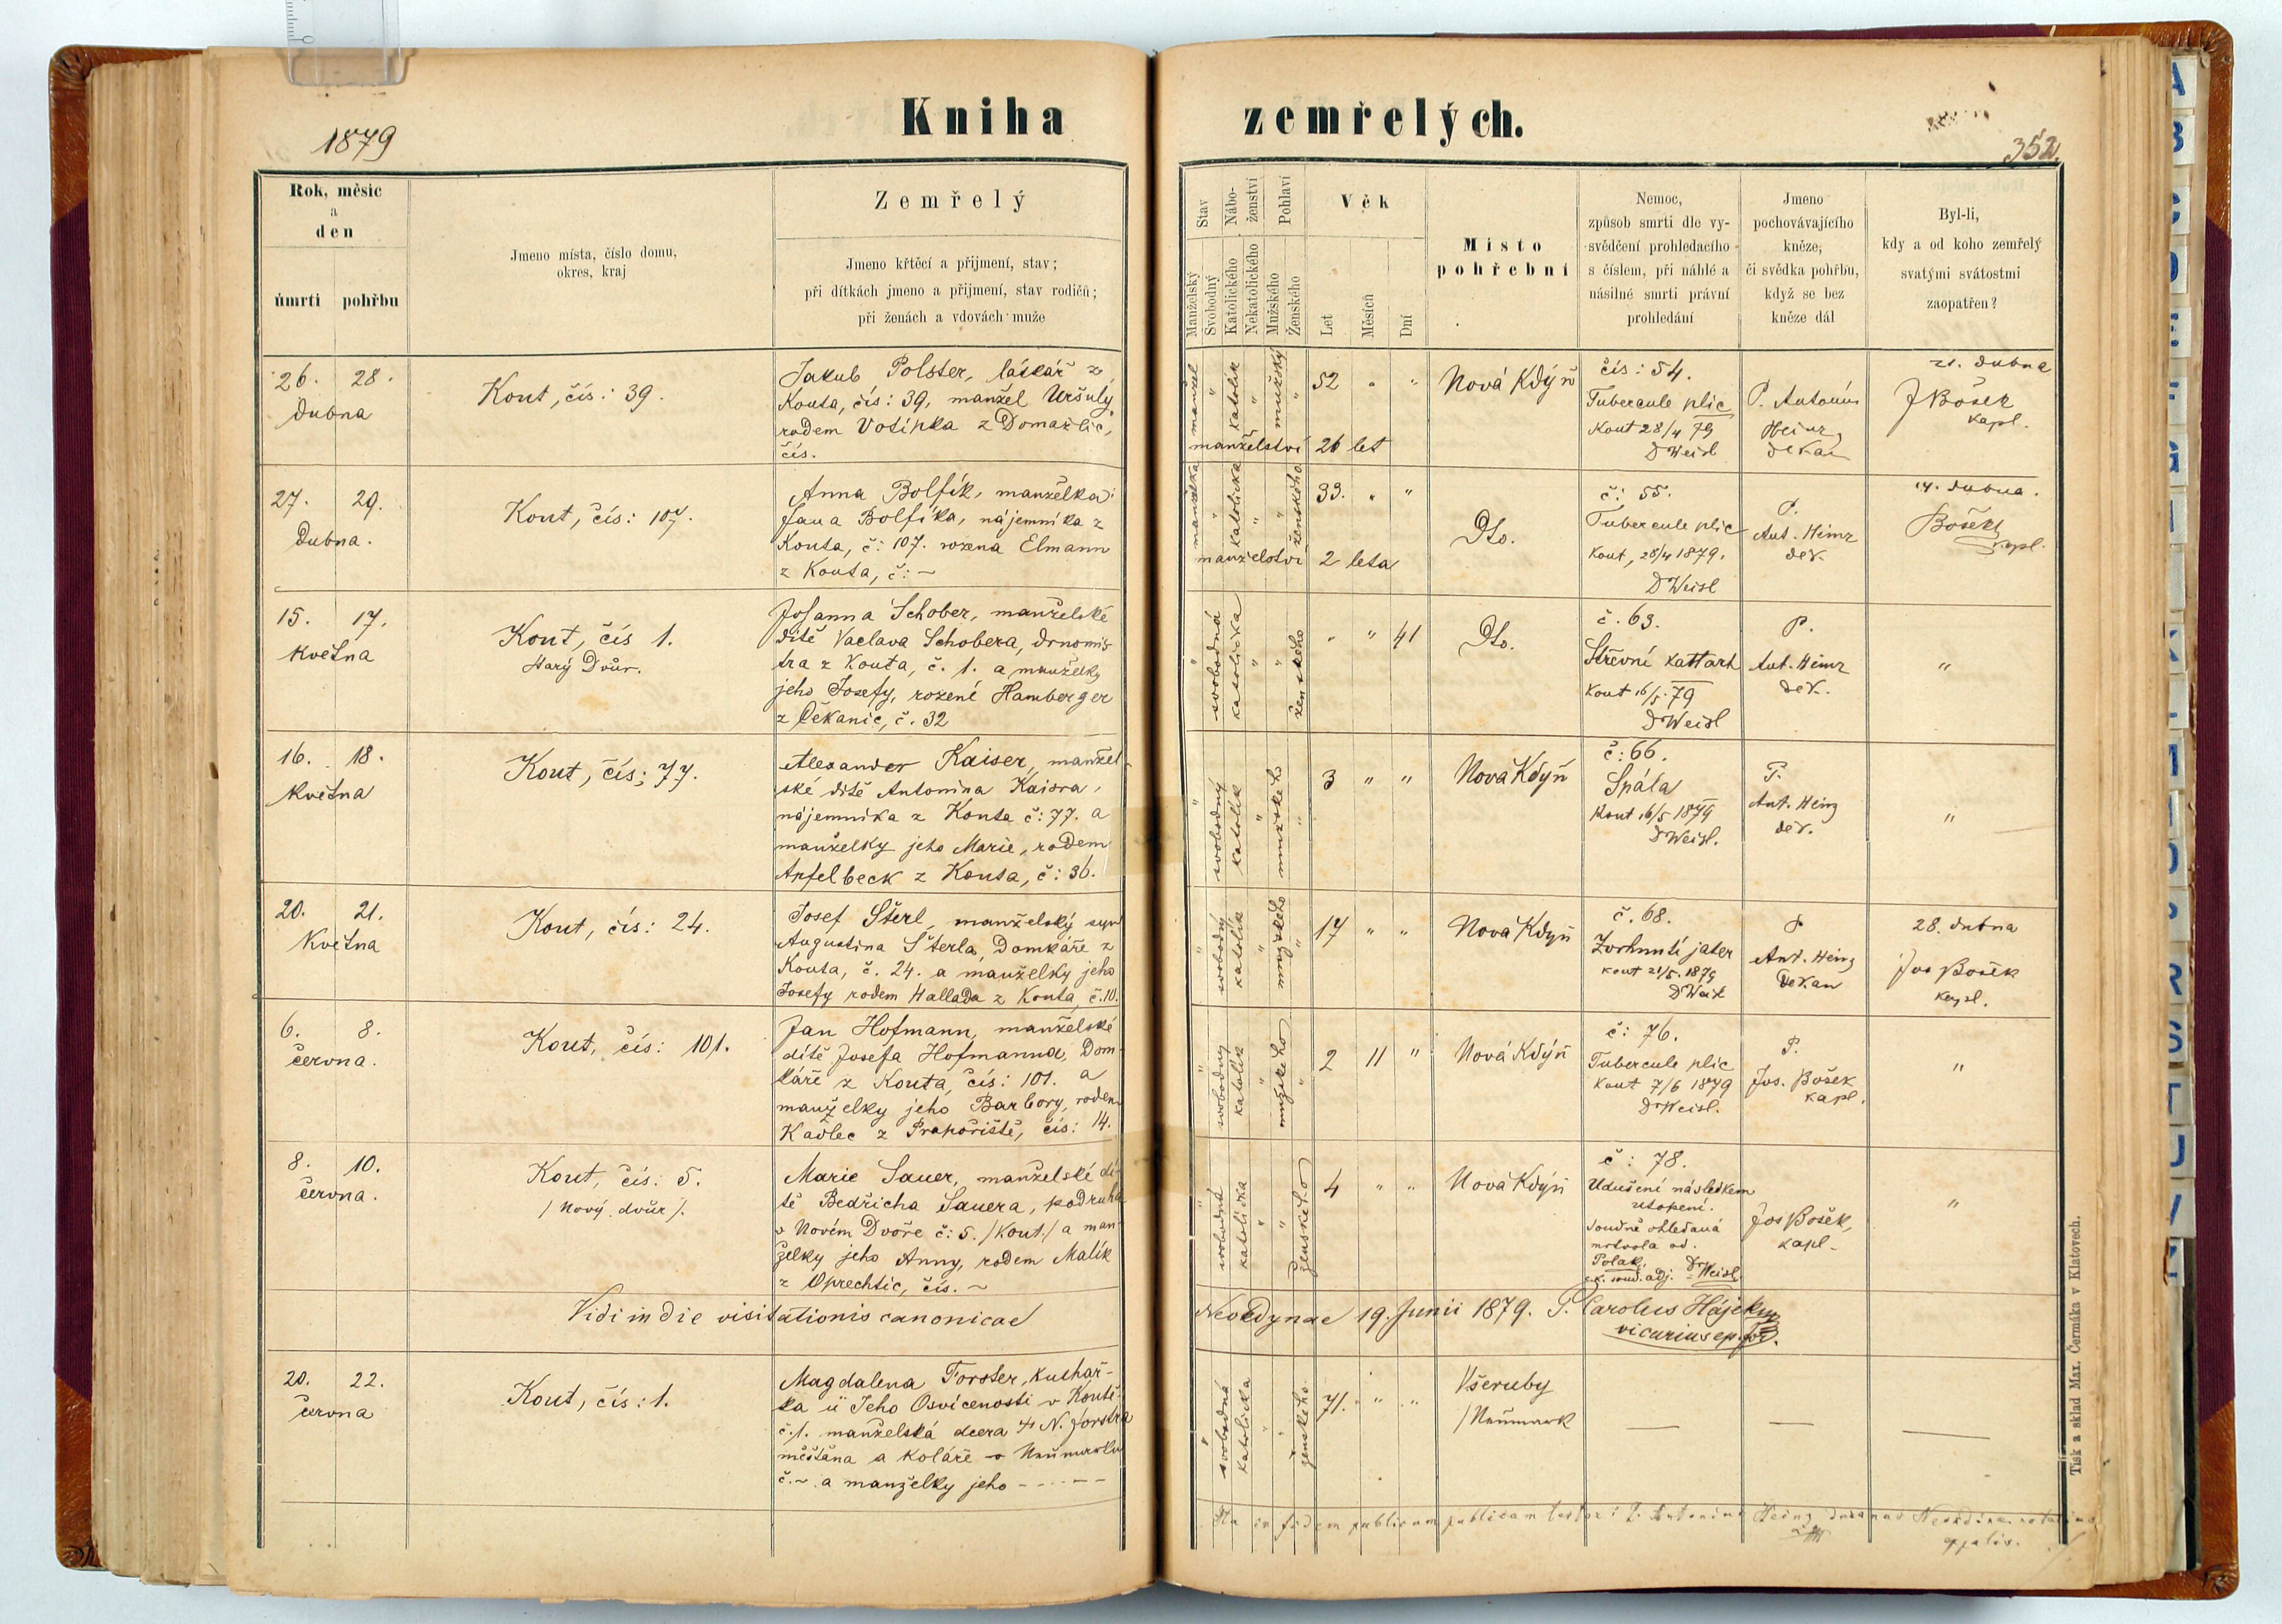 1879
Kniha zemřelých.
352.
Rok, měsíc
a
den
úmrtí pohřbu
Jmeno místa, číslo domu,
okres, kraj
Zemřelý
Jmeno křtěcí a přijmení, stav;
při dítkách jmeno a přijmení, stav rodičů;
při ženách a vdovách muže
Stav
Manželský
Svobodný
Nábo-
ženství
Katolického
Nekatolického
Pohlaví
Mužského
Ženského
Věk
Let
Měsíců
Dní
Místo
pohřební
Nemoc,
způsob smrti dle vy-
svědčení prohledacího
s číslem, při náhlé a
násilné smrti právní
prohledání
Jmeno
pochovávajícího
kněze,
či svědka pohřbu,
když se bez
kněze dál
Byl-li,
kdy a od koho zemřelý
svatými svátostmi
zaopatřen?
26. 28.
dubna
Kout, čís: 39.
Jakub Polster, láskář z
Kouta, čís: 39, manžel Uršuly
rodem Votípka z Domažlic,
čís.
manžel
katolík
mužský
52 " "
manželství 26 let
Nová Kdýň
čís: 54.
Tubercule plic
Kout 28/4 79
DWeisl
P. Antonín
Heinz
děkan
21. dubna
J Bošek
kapl.
27. 29.
Dubna.
Kout, čís: 107.
Anna Bolfík, manželka
Jana Bolfíka, nájemníka z
Kouta, č: 107. rozena Elmann
z Kouta, č: ~
manželka
katolička
ženského
33. " "
manželství 2 leta
Dto.
č: 55.
Tubercule plic
Kout, 28/4 1879.
DWeisl
P.
Ant. Heinz
děk.
14. dubna.
Bošek
kapl.
15. 17.
Května
Kout, čís 1.
Starý Dvůr.
Johanna Schober, manželské
dítě Vaclava Schobera, drnomis-
tra z Kouta, č. 1. a manželky
jeho Josefy, rozené Hamberger
z Čekanic, č. 32
svobodná
katolička
ženského
" " 41
Dto.
č. 63.
Střevní kattarh
Kout 16/5 79
DWeisl
P.
Ant. Heinz
děk.
"
16. 18.
Května
Kout, čís: 77.
Alexander Kaiser, manžel-
ské dítě Antonína Kaisra,
nájemníka z Kouta č: 77. a
manželky jeho Marie, rodem
Apfelbeck z Kouta, č: 36.
svobodný
katolík
mužského
3 " "
Nová Kdýň
č: 66.
Spála
Kout 16/5 1879
DWeisl.
P.
Ant. Heinz
děk.
"
20. 21.
Května
Kout, čís: 24.
Josef Šterl, manželský syn
Augustina Šterla, Domkáře z
Kouta, č. 24. a manželky jeho
Josefy rodem Hallada z Kouta, č. 10.
svobodný
katolík
mužského
17 " "
Nová Kdyň
č. 68.
Zvrhnutí jater
Kout 21/5. 1879
DWeisl
P
Ant. Heinz
Děkan
28. dubna
Jos Bošek
kapl.
6. 8.
června.
Kout, čís: 101.
Jan Hofmann, manželské
dítě Josefa Hofmanna, Dom-
káře z Kouta, čís: 101. a
manželky jeho Barbory, rodem
Kadlec z Prapořiště, čís: 14.
svobodný
katolík
mužského
2 11 "
Nová Kdýň
č: 76.
Tubercule plic
Kout 7/6 1879
DrWeisl.
P.
Jos. Bošek
kapl.
"
8. 10.
června.
Kout, čís: 5.
/Nový dvůr/.
Marie Sauer, manželské dí-
tě Bedřicha Sauera, podruha
v Novém Dvoře č: 5. /Kout./ a man-
želky jeho Anny, rodem Malík
z Oprechtic, čís. ~
svobodná
katolička
ženského
4 " "
Nová Kdýň
č: 78.
Udušení následkem
utopení.
Soudně ohledaná
mrtvola od.
Polak, Dr Weisl
c.k. soud. adj.
Jos Bošek,
kapl.
"
Vidi in die visitationis canonicae Neokdynae 19. Junii 1879. P. Carolus Hájek
vicarius ep. for.
20. 22.
června
Kout, čís: 1.
Magdalena Forster, kuchař-
ka u Jeho Osvícenosti v Koutě
č. 1. manželská dcera † N. Forstra
měšťana a koláře v Neumarku
č. ~. a manželky jeho - - - - -
svobodná
katolička
ženského
71. " "
Všeruby
/Neumark
—
—
—
Ita in fidem publicam publicam testor: P. Antonius Heinz decanus
Tisk a sklad Max. Čermáka v Klatovech.